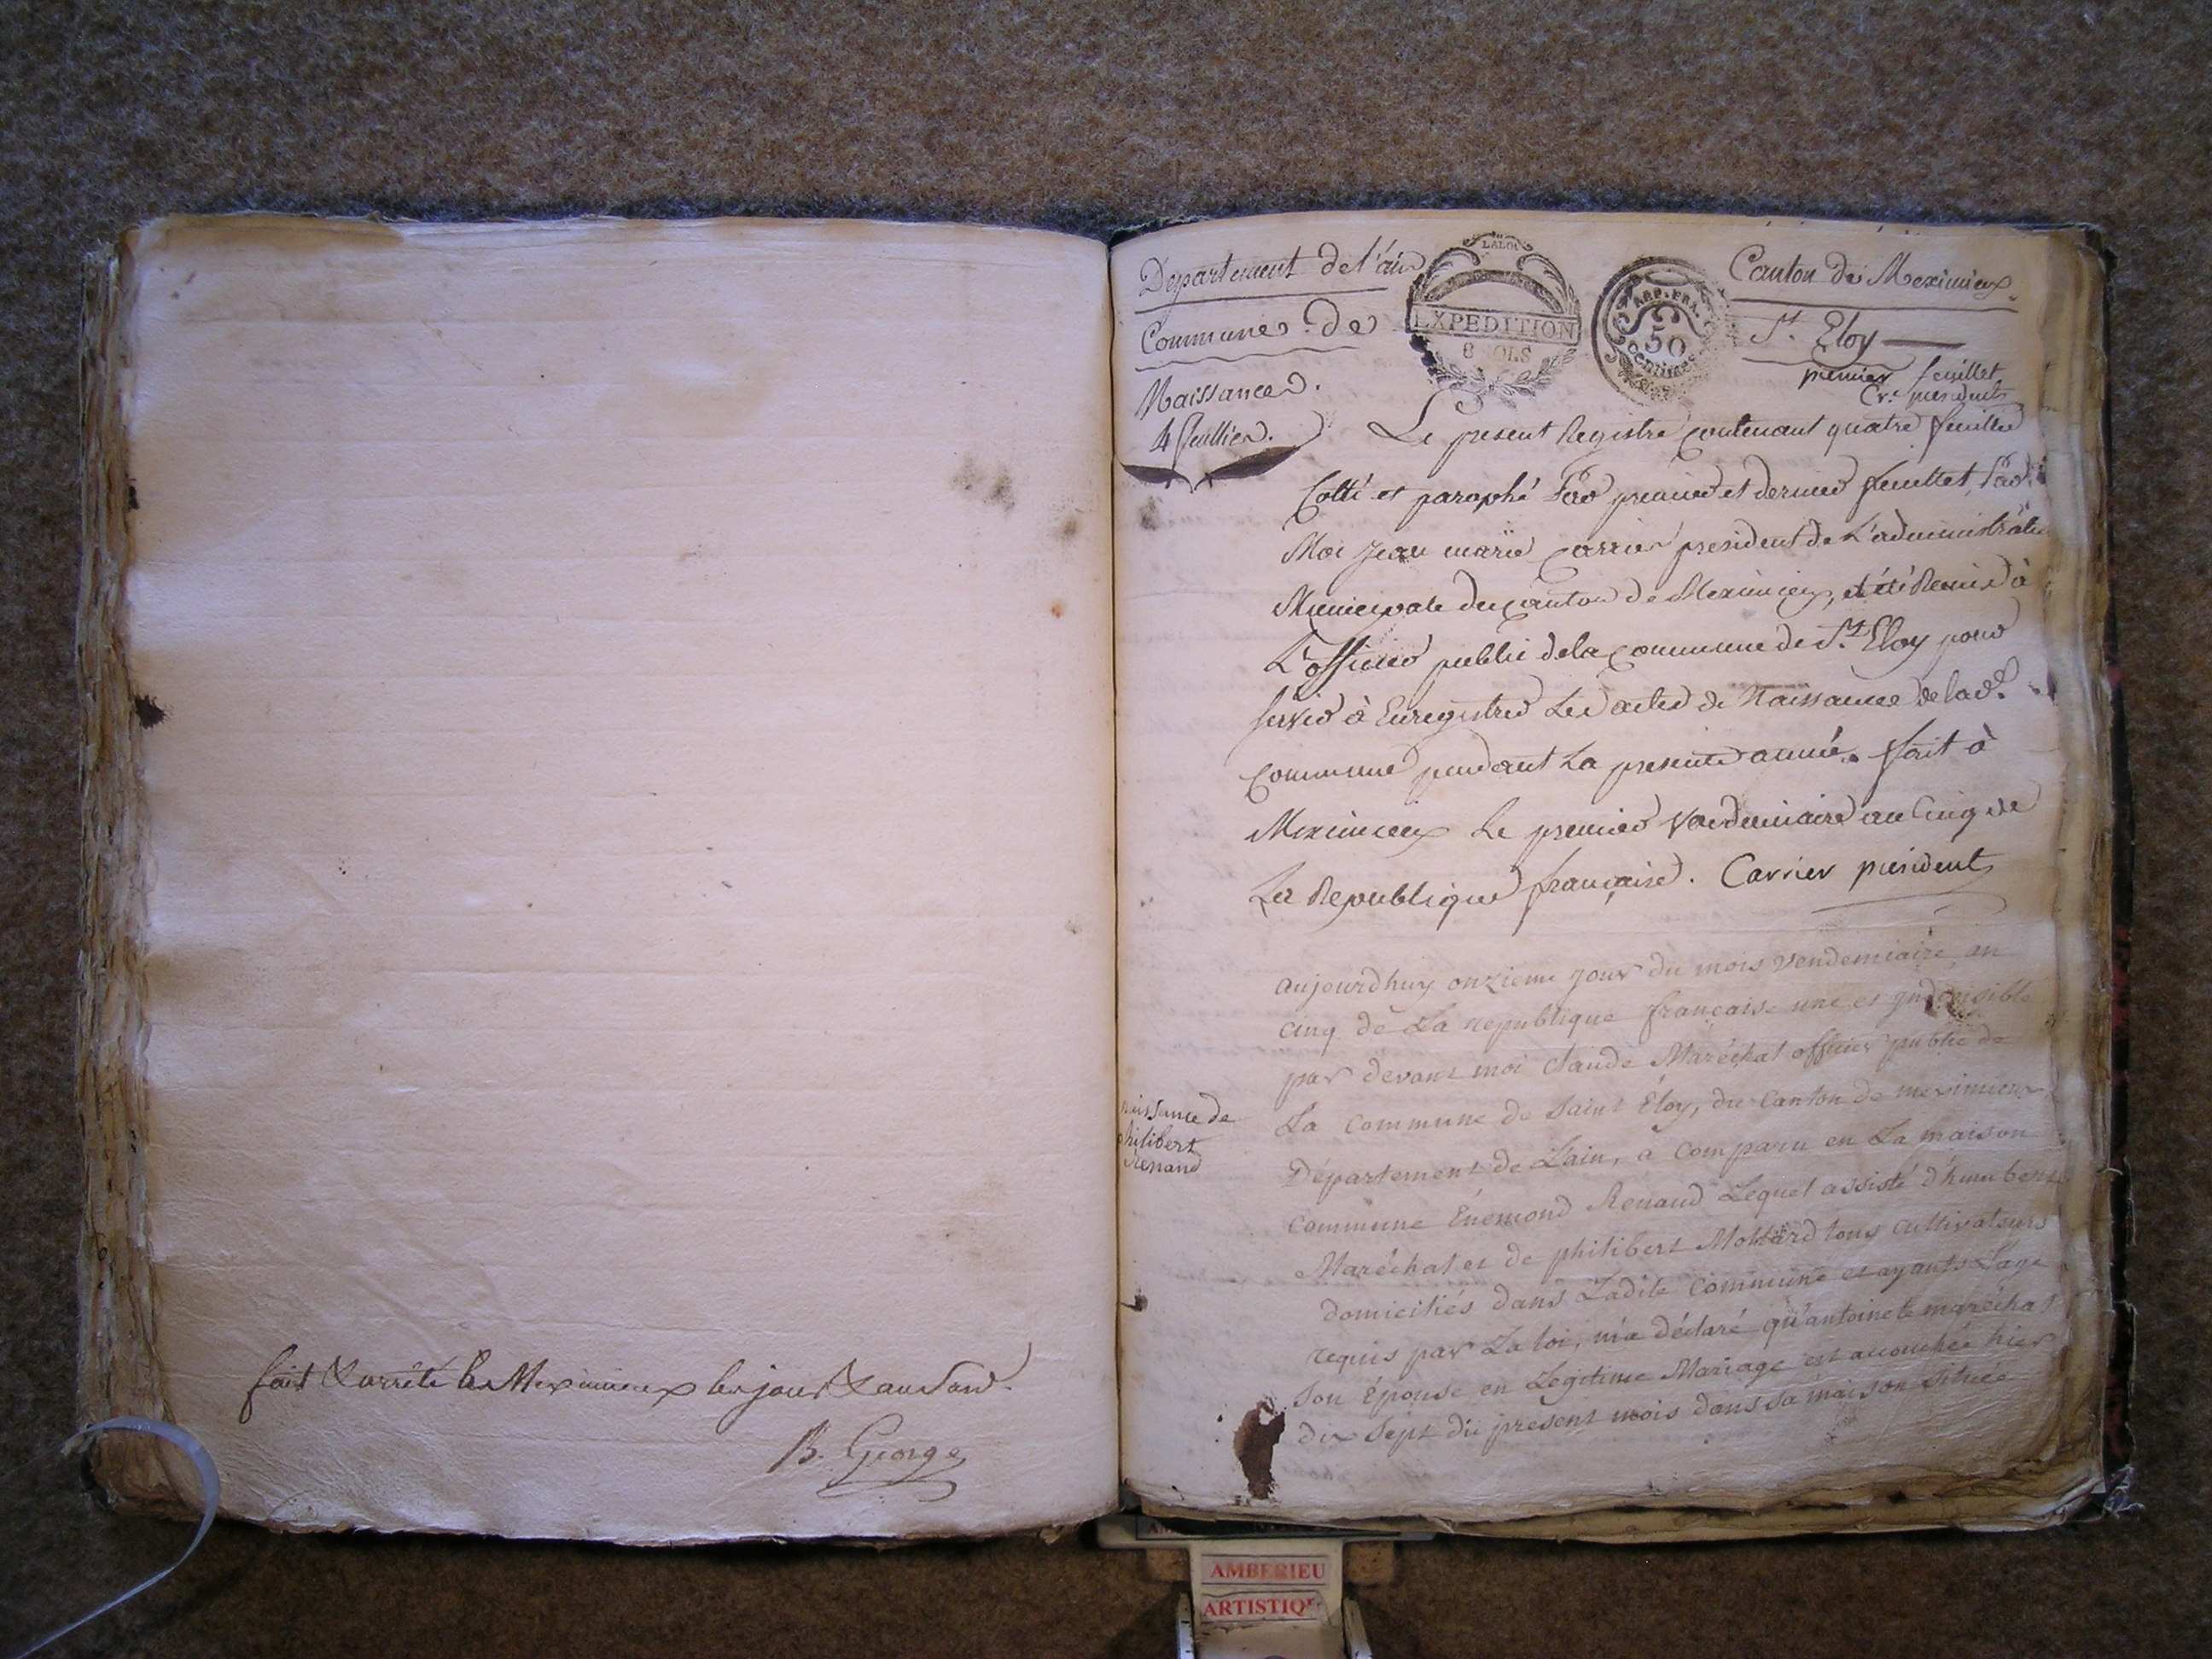 fait & arrêté les Meximieux les jour & an
B. George
Departement de l'ain
Canton de Meximieux
LALOI
EXPEDITION
8 SOLS
REP. FRA.
50
centimes
Commune de
St. Eloy
premier feuillet
Cr. president
Naissance.
4 feuilles.
Le present Registre contenant quatre feuilles
Cotté et paraphé Par premier et dernier feuillet, Par
Moi jean marie Carrier president de L'administration
Municipale du canton de Meximieux, été Remis à
L'officier public de la commune de St. Eloy pour
servir à Enregistrer Les actes de Naissance de lad.
commune pendant La presente année. fait à
Meximieux Le premier Vendemiaire an Cinq de
La Republique française. Carrier president
aujourdhuy onzieme jour du mois vendemiaire an
cinq de La republique française une et indivisible
par devant moi Claude Maréchal officier public de
La Commune de Saint Éloy, du Canton de meximieux
naissance de
philibert
Renand
Département de Lain, a comparu en La maison
Commune Énemond Renaud Lequel assisté d'humbert
Maréchal et de philibert Mollard tous cultivateurs
domiciliés dans Ladite Commune et ayants Lage
requis par La loi, m'a déclaré qu'antoinete maréchal
son Épouse en Legitime Mariage est accouchée hier
dix Sept du present mois dans sa maison située
AMBERIEU
ARTISTIQUE